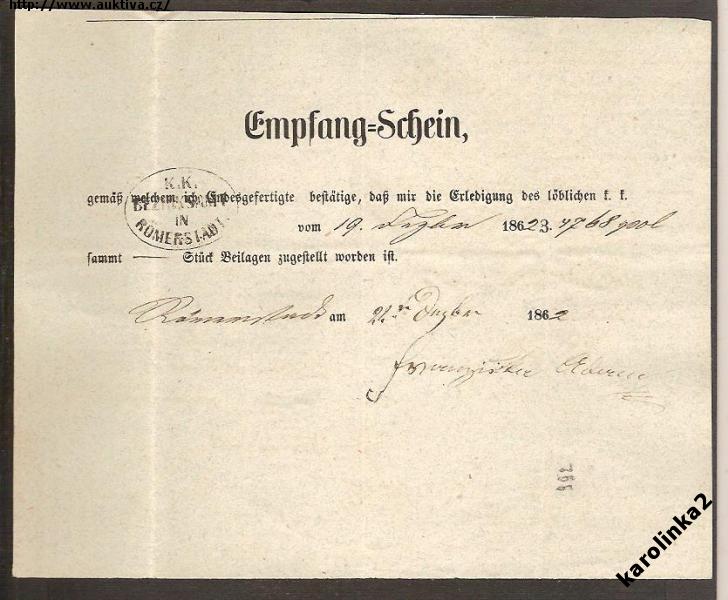 http://www.auktiva.cz/
Empfang=Schein,
gemäß welchem ich Endesgefertigte bestätige, daß mir die Erledigung des löblichen k. k.
K.K.
BEZIRKSAMT
IN
RÖMERSTADT.
vom 19. Dezber 1862 Z. 4768
sammt — Stück Beilagen zugestellt worden ist.
Römerstadt am 21. Dezber 1862
Franziska
karolinka2